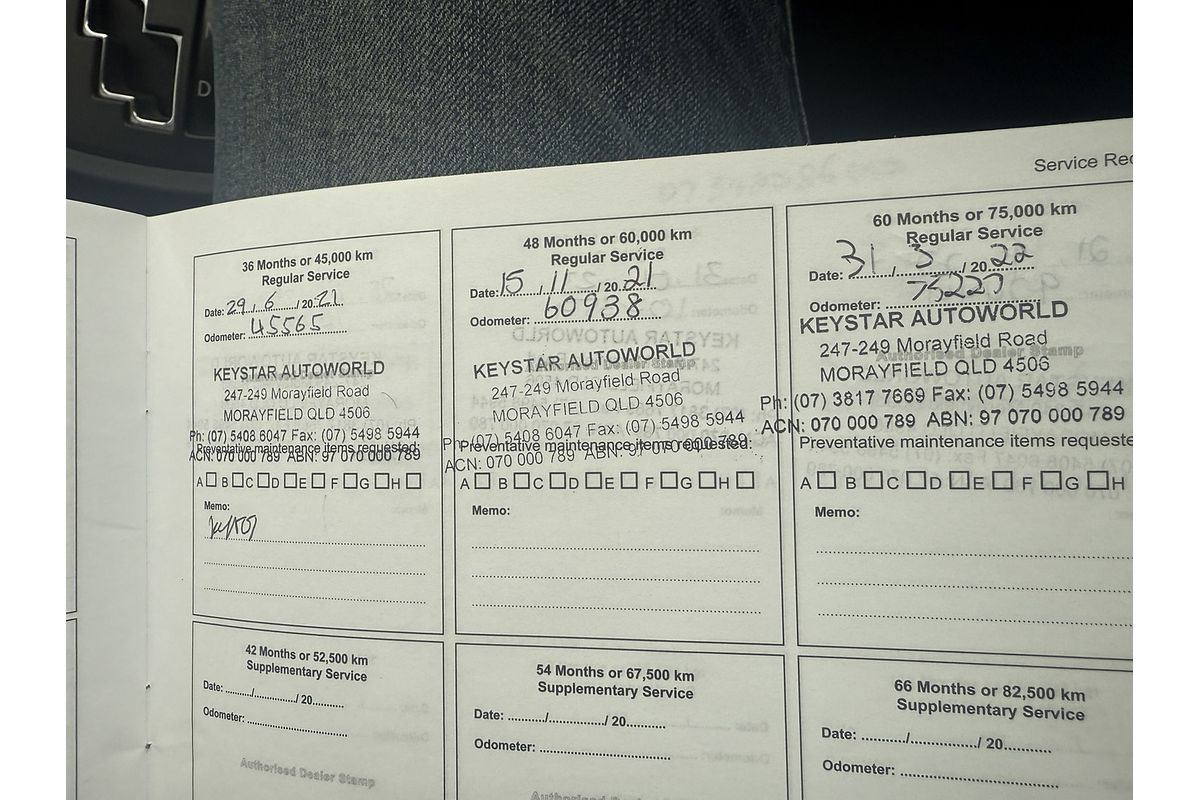 D
Service Rec
36 Months or 45,000 km
Regular Service
Date: 29 / 6 / 20 21
Odometer: 45565
KEYSTAR AUTOWORLD
247-249 Morayfield Road
MORAYFIELD QLD 4506
Ph: (07) 5408 6047 Fax: (07) 5498 5944
Preventative maintenance items requested:
ACN: 070 000 789 ABN: 97 070 000 789
A B C D E F G H
Memo:
42 Months or 52,500 km
Supplementary Service
Date: ........../................/ 20...........
Odometer: ..............................
Authorised Dealer Stamp
48 Months or 60,000 km
Regular Service
Date: 15 / 11 / 20 21
Odometer: 60938
KEYSTAR AUTOWORLD
Authorised Dealer Stamp
247-249 Morayfield Road
MORAYFIELD QLD 4506
Ph: (07) 5408 6047 Fax: (07) 5498 5944
Preventative maintenance items requested:
ACN: 070 000 789 ABN: 97 070 000 789
A B C D E F G H
Memo:
54 Months or 67,500 km
Supplementary Service
Date: ........../................/ 20...........
Odometer: ..............................
Authorised Dealer Stamp
60 Months or 75,000 km
Regular Service
Date: 31 / 3 / 20 22
Odometer:
KEYSTAR AUTOWORLD
247-249 Morayfield Road
Authorised Dealer Stamp
MORAYFIELD QLD 4506
Ph: (07) 3817 7669 Fax: (07) 5498 5944
ACN: 070 000 789 ABN: 97 070 000 789
Preventative maintenance items requeste
A B C D E F G H
Memo:
66 Months or 82,500 km
Supplementary Service
Date: ........../................/ 20...........
Odometer: ..............................